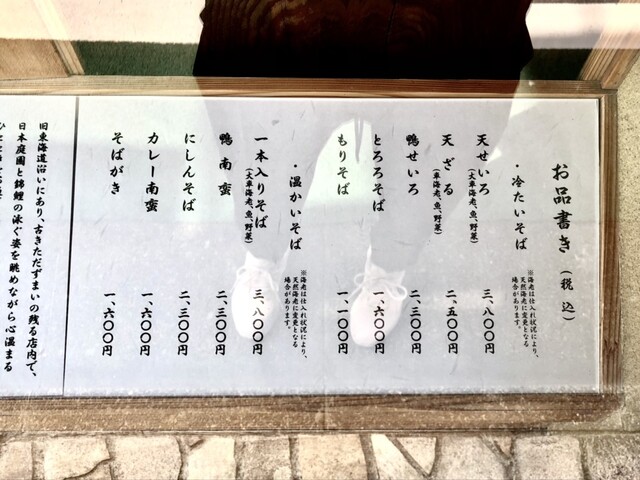 お品書き（税込）
・冷たいそば
※海老は仕入れ状況により、
天然海老に変更となる
場合があります。
天せいろ（大車海老、魚、野菜） 三、八〇〇円
天ざる（車海老、魚、野菜） 二、五〇〇円
鴨せいろ 二、三〇〇円
とろろそば 一、六〇〇円
もりそば 一、一〇〇円
・温かいそば
※海老は仕入れ状況により、
天然海老に変更となる
場合があります。
一本入りそば（大車海老、魚、野菜） 三、八〇〇円
鴨南蛮 二、三〇〇円
にしんそば 二、三〇〇円
カレー南蛮 一、六〇〇円
そばがき 一、六〇〇円
旧東海道沿いにあり、古きたたずまいの残る店内で、
日本庭園と錦鯉の泳ぐ姿を眺めながら心温まる